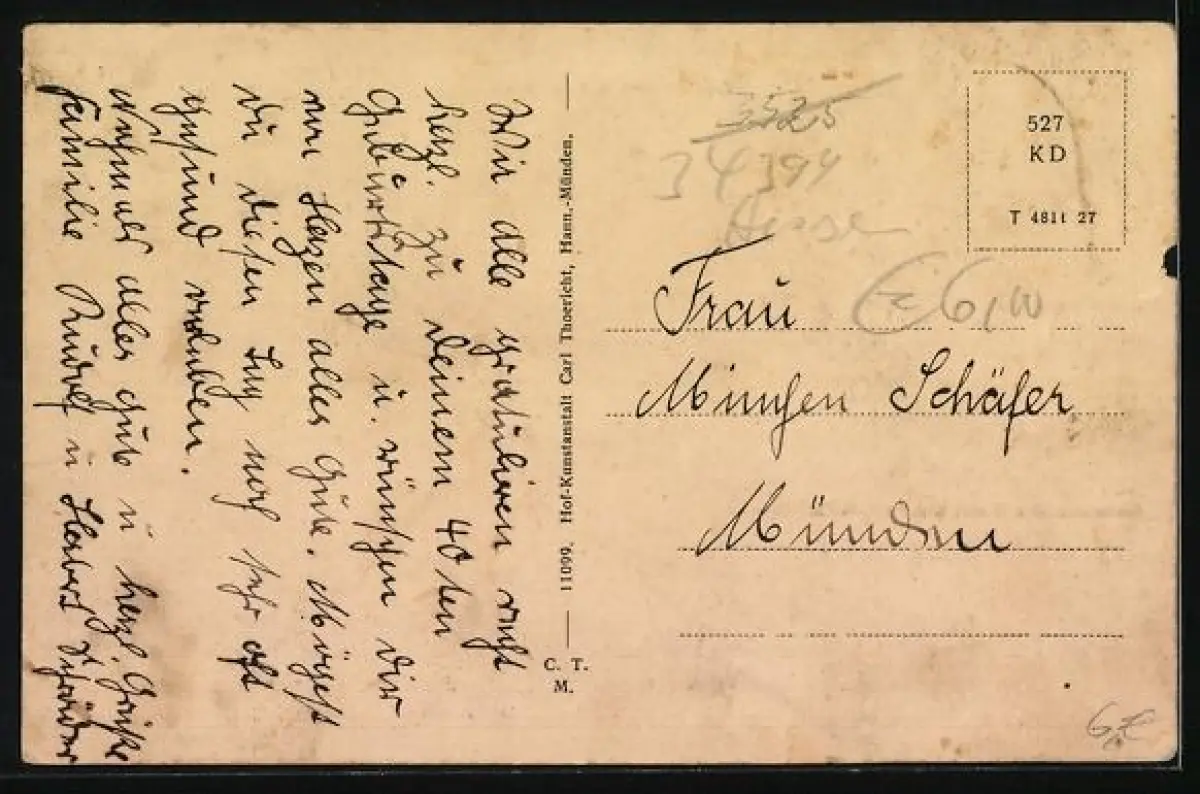 Wir alle gratulieren recht
herzl. zu Deinem 40ten
Geburtstage u. wünschen Dir
von Herzen alles Gute. Mögest
Du diesen Tag noch sehr oft
gesund erleben.
Nochmals alles gute u herzl. Grüße
Familie Rudolf u Herbert Schröder
11099. Hof-Kunstanstalt Carl Thoericht, Hann.-Münden.
C. T.
M.
527
KD
T 4811 27
3525
34394
Hesse
€ 6,00
Frau
Minchen Schäfer
Münden
6,€